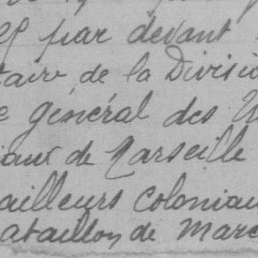 par devant
taire de la Divisio
général des
iaux de Marseille
ailleurs coloniau
bataillon de Marc